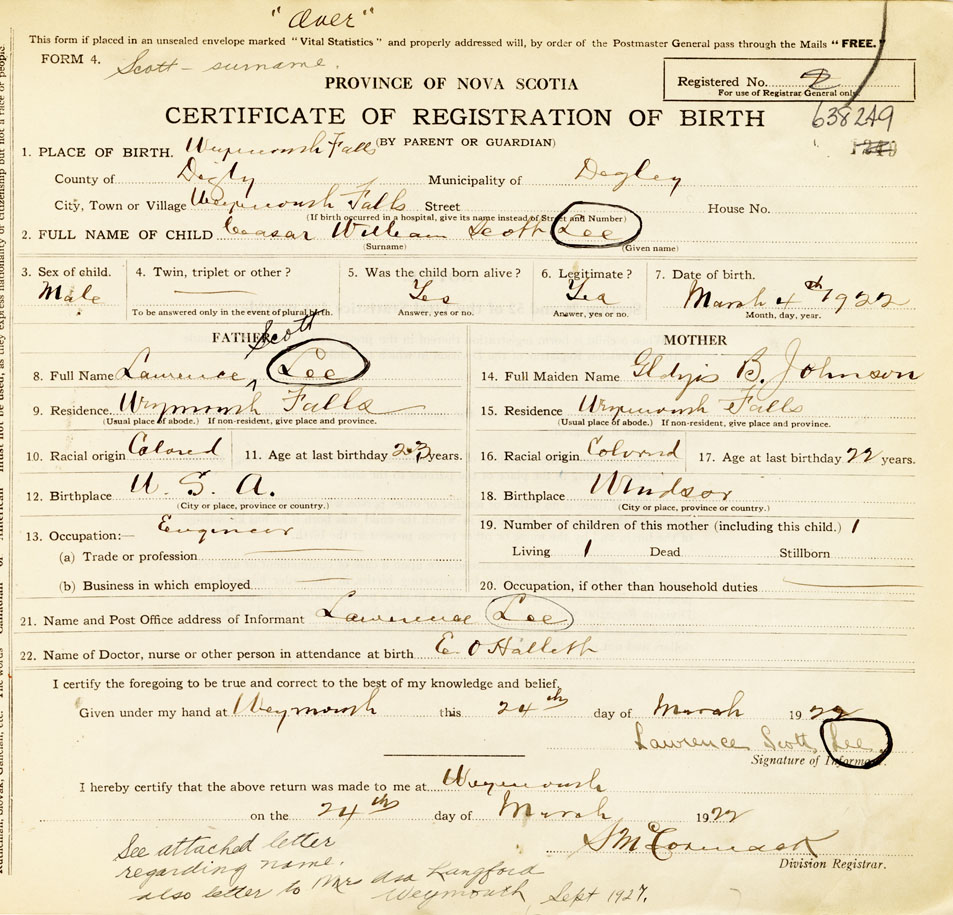 "Over"
This form if placed in an unsealed envelope marked "Vital Statistics" and properly addressed will, by order of the Postmaster General pass through the Mails "FREE."
FORM 4. Scott - surname.
PROVINCE OF NOVA SCOTIA
Registered No.
For use of Registrar General only.
CERTIFICATE OF REGISTRATION OF BIRTH
638249
(BY PARENT OR GUARDIAN)
1. PLACE OF BIRTH. Weymouth Falls
County of Digby Municipality of Digby
City, Town or Village Weymouth Falls Street House No.
(If birth occurred in a hospital, give its name instead of Street and Number)
2. FULL NAME OF CHILD Ceasar William Scott Lee
(Surname) (Given name)
3. Sex of child. 4. Twin, triplet or other? 5. Was the child born alive? 6. Legitimate? 7. Date of birth.
Male Yes Yes March 4th 1922
To be answered only in the event of plural birth. Answer, yes or no. Answer, yes or no. Month, day, year.
FATHER MOTHER
Scott
8. Full Name Lawrence Lee 14. Full Maiden Name Gladys B. Johnson
9. Residence Weymouth Falls 15. Residence Weymouth Falls
(Usual place of abode.) If non-resident, give place and province. (Usual place of abode.) If non-resident, give place and province.
10. Racial origin Colored 11. Age at last birthday 23 years. 16. Racial origin Colored 17. Age at last birthday 22 years.
12. Birthplace U. S. A. 18. Birthplace Windsor
(City or place, province or country.) (City or place, province or country.)
13. Occupation:— Engineer 19. Number of children of this mother (including this child.) 1
(a) Trade or profession Living 1 Dead Stillborn
(b) Business in which employed 20. Occupation, if other than household duties
21. Name and Post Office address of Informant Lawrence Lee
22. Name of Doctor, nurse or other person in attendance at birth E. O Halleth
I certify the foregoing to be true and correct to the best of my knowledge and belief.
Given under my hand at Weymouth this 24th day of March 1922
Lawrence Scott Lee
Signature of Informant.
I hereby certify that the above return was made to me at Weymouth
on the 24th day of March 1922
S McCormack
Division Registrar.
See attached letter
regarding name.
also letter to Mrs Asa Langford
Weymouth, Sept 1927.